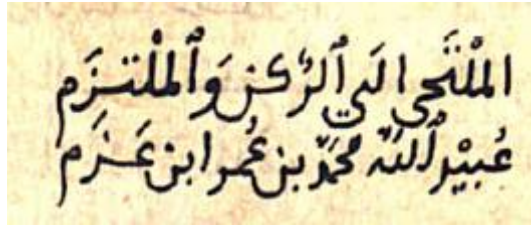 المْلتَجي الَي ٱلرُّكنِ وَٱلملْتزَم
عُبيْد ٱللَّه محمّد بن عُمر ابن عَزَم